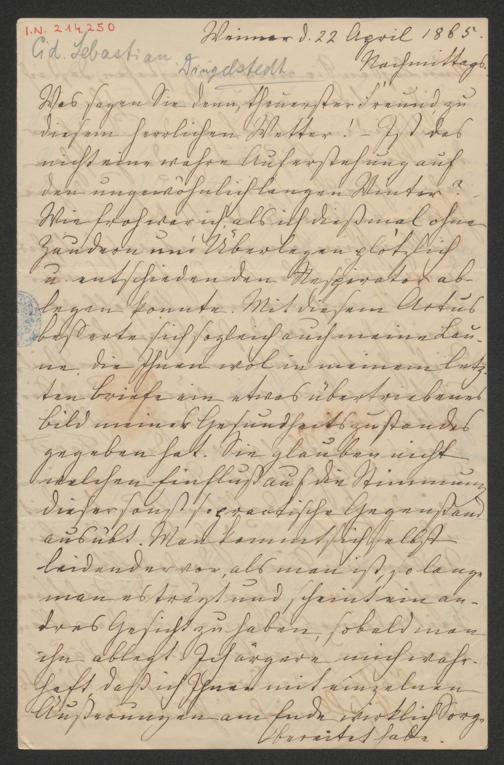 I.N. 214.250
Weimar d. 22 April 1865.
Cid. Sebastian
Dingelstedt
Nachmittags.
Was sagen Sie denn, theuerster Freund, zu
diesem herrlichen Wetter! – Ist das
nicht eine wahre Auferstehung auf
den ungewöhnlich langen Winter?
Wie froh war ich als ich dießmal ohne
Zaudern und Überlegen plötzlich
u. entschieden den Respirator ab-
legen konnte. Mit diesem Actus
besserte sich sogleich auch meine Lau-
ne, die Ihnen wol in meinem letz-
ten Briefe ein etwas übertriebenes
Bild meines Gesundheitszustandes
gegeben hat. Sie glauben nicht
welchen Einfluß auf die Stimmung
dieser sonst so practische Gegenstand
ausübt. Man kommt sich selbst
leidender vor, als man ist, so lange
man es trägt und scheint ein an-
dres Gesicht zu haben, sobald man
ihn ablegt. Ich ärgere mich wahr-
haft, daß ich Ihnen mit einzelnen
Äußerungen am Ende wirklich Sorge
bereitet habe.